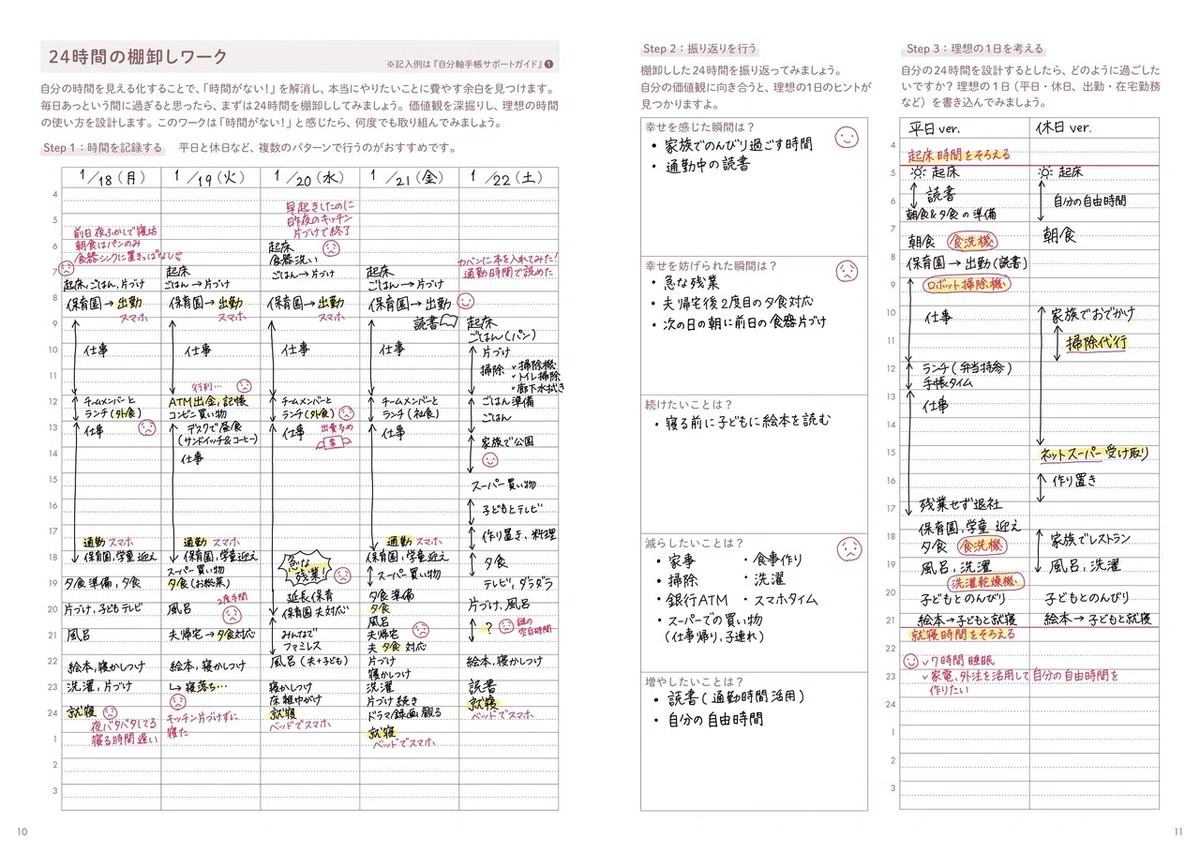 24時間の棚卸しワーク
※記入例は『自分軸手帳サポートガイド』❶
自分の時間を見える化することで、「時間がない！」を解消し、本当にやりたいことに費やす余白を見つけます。
毎日あっという間に過ぎると思ったら、まずは24時間を棚卸ししてみましょう。価値観を深掘りし、理想の時間
の使い方を設計します。このワークは「時間がない！」と感じたら、何度でも取り組んでみましょう。
Step 1：時間を記録する　平日と休日など、複数のパターンで行うのがおすすめです。
1/18（月）
1/19（火）
1/20（水）
1/21（金）
1/22（土）
4
5
6
7
8
9
10
11
12
13
14
15
16
17
18
19
20
21
22
23
24
1
2
3
前日夜ふかしで寝坊
朝食はパンのみ
食器シンクに置きっぱなし
起床,ごはん,片づけ
保育園→出勤
スマホ
仕事
チームメンバーと
ランチ(外食)
仕事
通勤 スマホ
保育園,学童 迎え
夕食準備,夕食
片づけ,子どもテレビ
風呂
絵本,寝かしつけ
洗濯,片づけ
就寝
夜バタバタしてる
寝る時間遅い
起床
ごはん→片づけ
保育園→出勤
スマホ
仕事
行列…
ATM出金,記帳
コンビニ買い物
デスクで昼食
(サンドイッチ&コーヒー)
仕事
通勤 スマホ
保育園,学童迎え
スーパー買い物
夕食(お総菜)
2度手間
風呂
夫帰宅→夕食対応
絵本,寝かしつけ
↳寝落ち…
キッチン片づけずに
寝た
早起きしたのに
昨夜のキッチン
片づけで終了
起床
食器洗い
ごはん→片づけ
保育園→出勤
スマホ
仕事
チームメンバーと
ランチ(外食)
仕事
出費多め
急な
残業!
延長保育
保育園 夫対応
みんなで
ファミレス
風呂(夫+子ども)
寝かしつけ
床雑巾がけ
就寝
ベッドでスマホ
起床
ごはん→片づけ
保育園→出勤
読書
仕事
チームメンバーと
ランチ(社食)
仕事
通勤 スマホ
保育園,学童迎え
スーパー買い物
夕食準備
夕食
風呂
夫帰宅
夫 夕食 対応
片づけ
寝かしつけ
洗濯
片づけ続き
ドラマ録画観る
就寝
ベッドでスマホ
カバンに本を入れてみた!
通勤時間で読めた
起床
ごはん(パン)
片づけ
掃除
✓掃除機
✓トイレ掃除
✓廊下水拭き
ごはん準備
ごはん
家族で公園
スーパー買い物
子どもとテレビ
作り置き、料理
夕食
テレビ,ダラダラ
片づけ,風呂
?
謎の
空白時間
絵本,寝かしつけ
読書
就寝
ベッドでスマホ
10
Step 2：振り返りを行う
棚卸しした24時間を振り返ってみましょう。
自分の価値観に向き合うと、理想の1日のヒントが
見つかりますよ。
幸せを感じた瞬間は？
• 家族でのんびり過ごす時間
• 通勤中の読書
幸せを妨げられた瞬間は？
• 急な残業
• 夫帰宅後2度目の夕食対応
• 次の日の朝に前日の食器片づけ
続けたいことは？
• 寝る前に子どもに絵本を読む
減らしたいことは？
• 家事
• 食事作り
• 掃除
• 洗濯
• 銀行ATM
• スマホタイム
• スーパーでの買い物
(仕事帰り,子連れ)
増やしたいことは？
• 読書(通勤時間活用)
• 自分の自由時間
Step 3：理想の1日を考える
自分の24時間を設計するとしたら、どのように過ごした
いですか？理想の1日（平日・休日、出勤・在宅勤務
など）を書き込んでみましょう。
平日 ver.
休日 ver.
4
5
6
7
8
9
10
11
12
13
14
15
16
17
18
19
20
21
22
23
24
1
2
3
起床時間をそろえる
起床
読書
朝食&夕食の準備
朝食 食洗機
保育園→出勤(読書)
ロボット掃除機
仕事
ランチ(弁当持参)
手帳タイム
仕事
残業せず退社
保育園,学童 迎え
夕食 食洗機
風呂,洗濯
洗濯乾燥機
子どもとのんびり
絵本→子どもと就寝
就寝時間をそろえる
✓7時間睡眠
✓家電,外注を活用して自分の自由時間を
作りたい
起床
自分の自由時間
朝食
家族でおでかけ
掃除代行
ネットスーパー受け取り
作り置き
家族でレストラン
風呂,洗濯
子どもとのんびり
絵本→子どもと就寝
11